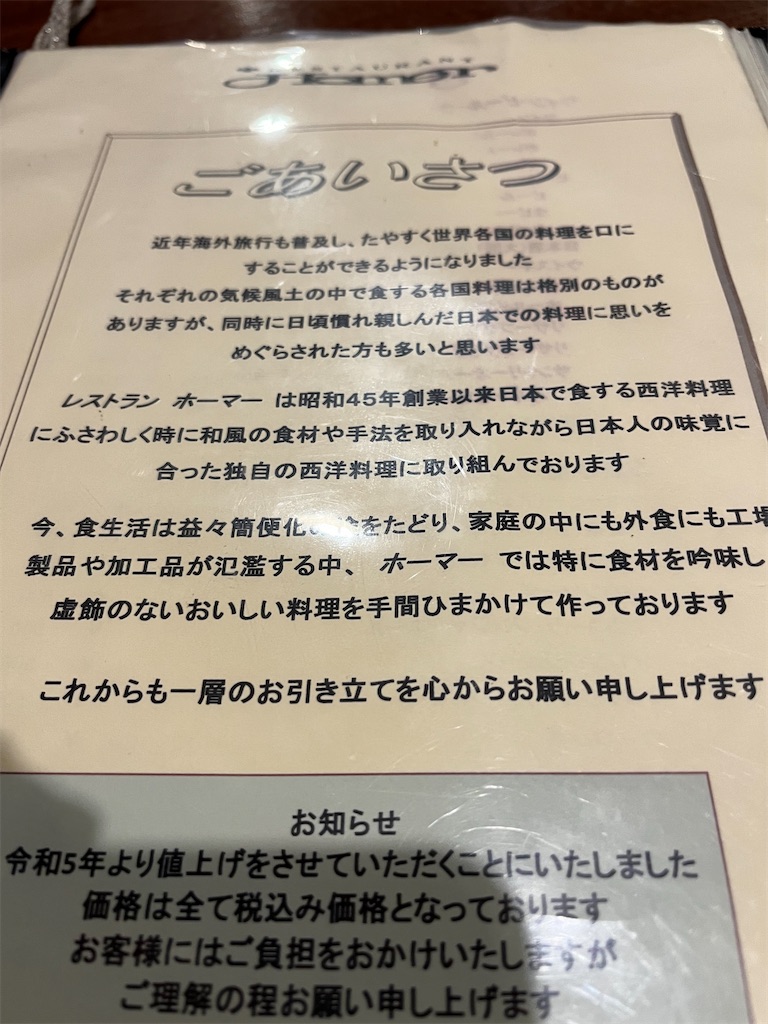 RESTAURANT
ごあいさつ
近年海外旅行も普及し、たやすく世界各国の料理を口に
することができるようになりました
それぞれの気候風土の中で食する各国料理は格別のものが
ありますが、同時に日頃慣れ親しんだ日本での料理に思いを
めぐらされた方も多いと思います
レストラン ホーマー は昭和45年創業以来日本で食する西洋料理
にふさわしく時に和風の食材や手法を取り入れながら日本人の味覚に
合った独自の西洋料理に取り組んでおります
今、食生活は益々簡便化の をたどり、家庭の中にも外食にも工場
製品や加工品が氾濫する中、 ホーマー では特に食材を吟味し
虚飾のないおいしい料理を手間ひまかけて作っております
これからも一層のお引き立てを心からお願い申し上げます
お知らせ
令和5年より値上げをさせていただくことにいたしました
価格は全て税込み価格となっております
お客様にはご負担をおかけいたしますが
ご理解の程お願い申し上げます